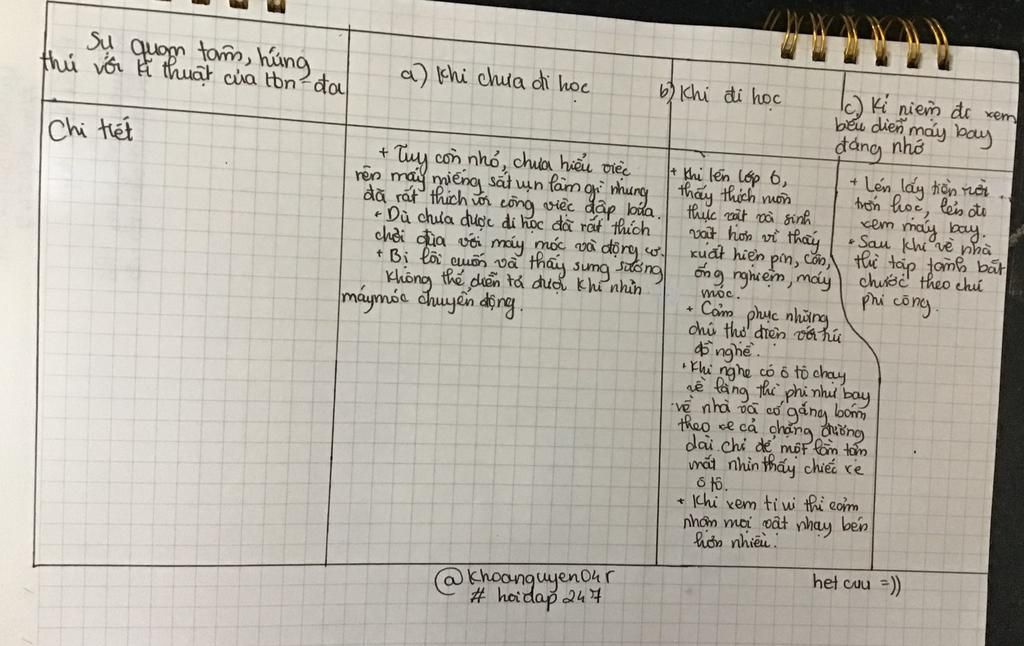 Sự quan tâm, hứng
thú với kĩ thuật của Hon-đa
a) Khi chưa đi học
b) Khi đi học
c) Kỉ niệm đi xem
biểu diễn máy bay
đáng nhớ
Chi tiết
+ Tuy còn nhỏ, chưa hiểu việc
rèn mấy miếng sắt vụn làm gì nhưng
đã rất thích với công việc đập búa.
+ Dù chưa được đi học đã rất thích
chơi đùa với máy móc và động cơ.
+ Bị lôi cuốn và thấy sung sướng
không thể diễn tả được khi nhìn
máy móc chuyển động.
+ Khi lên lớp 6,
thấy thích môn
thực vật và sinh
vật hơn vì thấy
xuất hiện pin, cân,
ống nghiệm, máy
móc.
+ Cảm phục những
chú thợ điện với túi
đồ nghề.
+ Khi nghe có ô tô chạy
về làng thì phi như bay
về nhà và cố gắng bám
theo xe cả chặng đường
dài. chỉ để một lần tận
mắt nhìn thấy chiếc xe
ô tô.
+ Khi xem ti vi thì cảm
nhận mọi vật nhạy bén
hơn nhiều.
+ Lén lấy tiền rồi
trốn học, lén đi
xem máy bay.
+ Sau khi về nhà
thì tập tành bắt
chước theo chú
phi công.
@khoanguyen04r
# hoidap247
het cuu =))